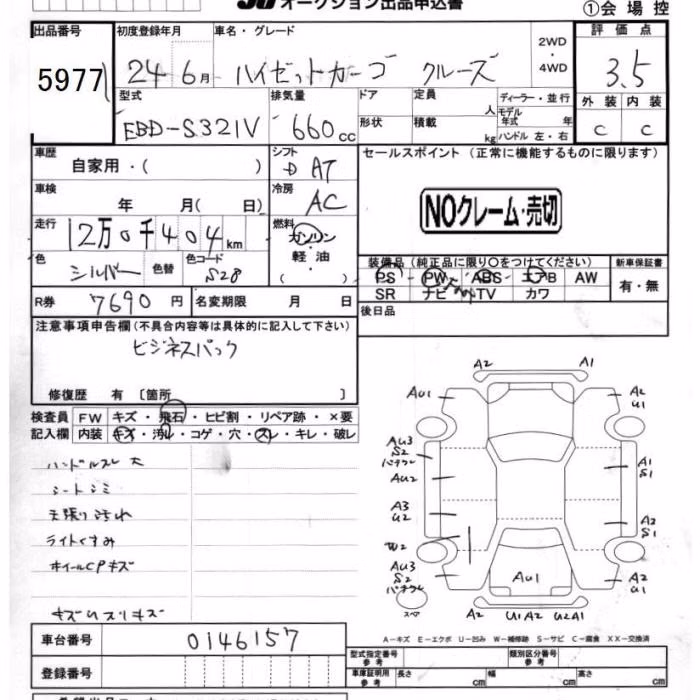 オークション出品申込書 ①会場控
出品番号 初度登録年月 車名・グレード 2WD・4WD 評価点
5977 24 6月 ハイゼットカーゴ クルーズ 3.5
型式 排気量 ドア 定員 人 ディーラー・並行 外装 内装
EBD-S321V 660cc 形状 積載 kg モデル年式 年 ハンドル 左・右 C C
車歴 自家用・( ) シフト D AT セールスポイント (正常に機能するものに限ります)
車検 年 月( 日) 冷房 AC NOクレーム・売切
走行 12万0千404km 燃料 ガソリン・軽油・( )
色 シルバー 色替 色コード S28 装備品 (純正品に限り○をつけてください) 新車保証書
PS PW ABS エアB AW 有・無
SR ナビ TV カワ
R券 7690円 名変期限 月 日 後日品
注意事項申告欄(不具合内容等は具体的に記入して下さい)
ビジネスパック
修復歴 有 〔箇所 〕
検査員 FW キズ・飛石・ヒビ割・リペア跡・×要
記入欄 内装 キズ・汚れ・コゲ・穴・スレ・キレ・破レ
ハンドルスレ大
シートシミ
天張り汚れ
ライトくすみ
ホイールCPキズ
A2 A1
AU1 A2 U1
AU3 S2
AU2 A1 S1
A3 U2 A2 S1
W2
AU3 S2 AU1 A2 U1
スペア A2 U1 A2 U2 A1
A-キズ E-エクボ U-凹み W-補修跡 S-サビ C-腐食 XX-交換済
車台番号 0146157
型式指定番号 参考 類別区分番号 参考
登録番号 車庫証明用 参考 長さ cm 幅 cm 高さ cm